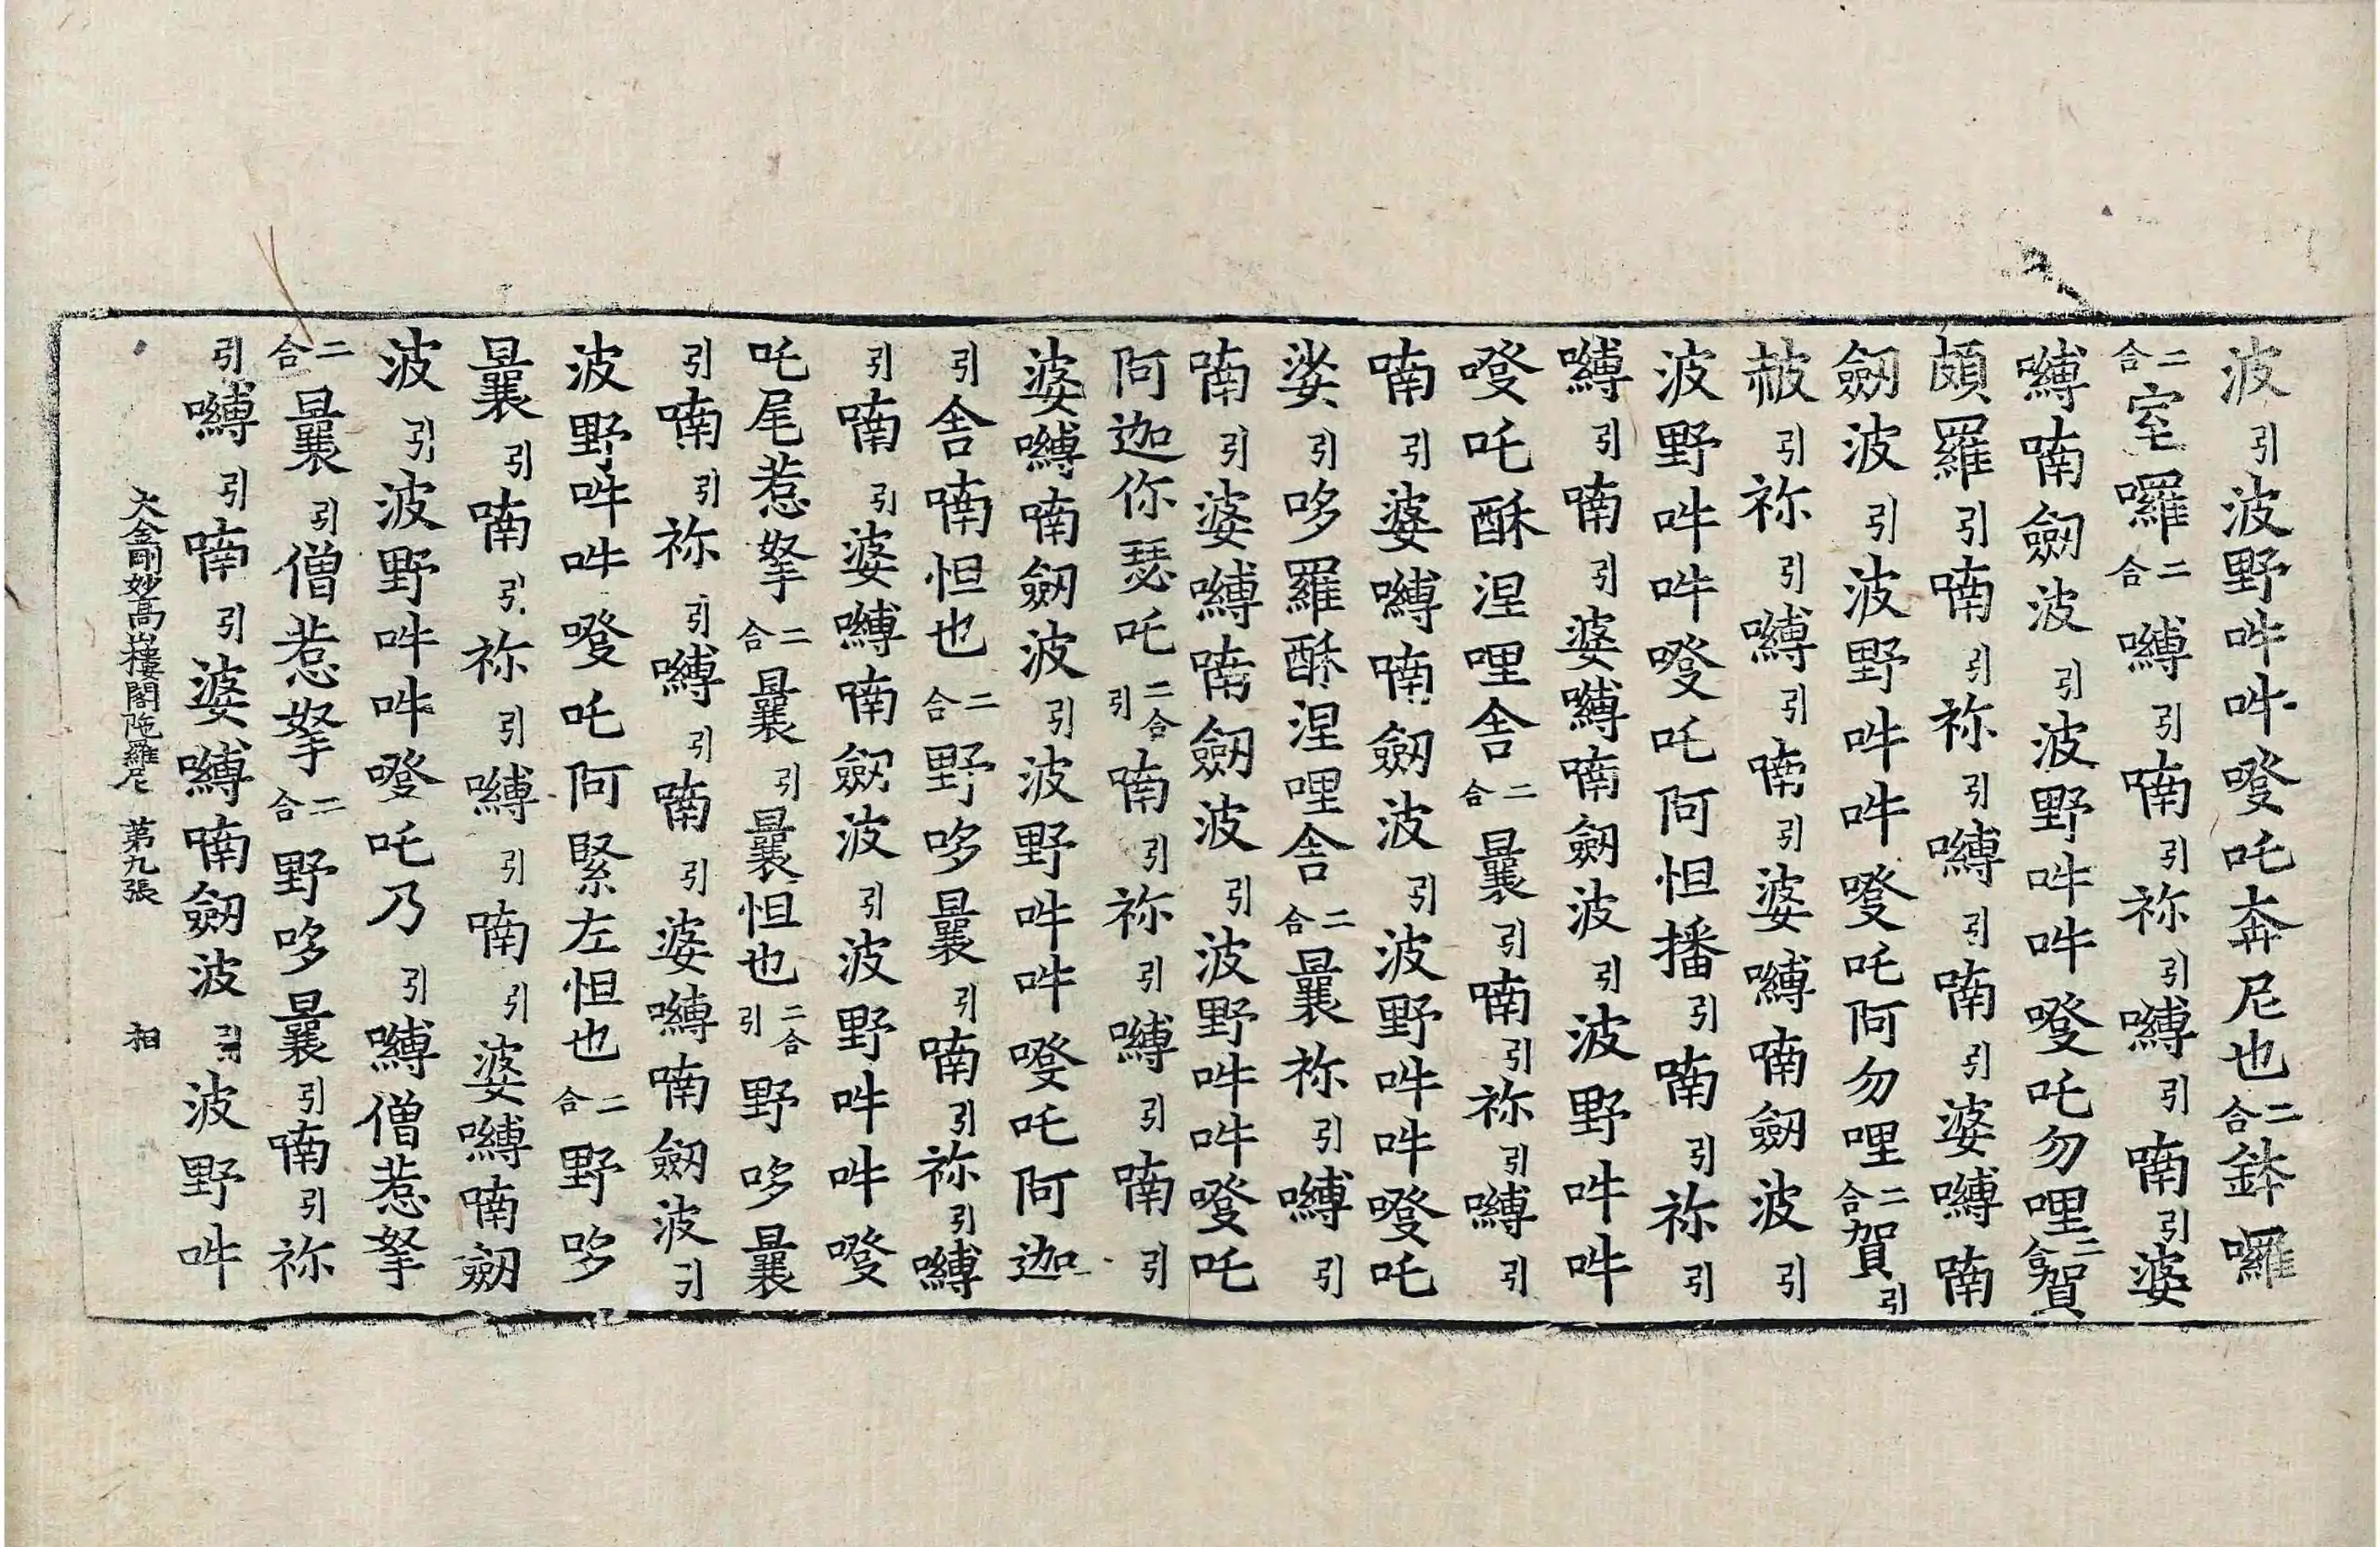 波引波野吽吽𠽾吒奔尼也二合鉢囉
二合室囉二合嚩引喃引祢引嚩引喃引婆
嚩喃劒波引波野吽吽𠽾吒勿哩二合賀
頗羅引喃引祢引嚩引喃引婆嚩喃
劒波引波野吽吽𠽾吒阿勿哩二合賀引
赧引祢引嚩引喃引婆嚩喃劒波引
波野吽吽𠽾吒阿怛播引喃引祢引
嚩引喃引婆嚩喃劒波引波野吽吽
𠽾吒酥涅哩舍二合曩引喃引祢引嚩引
喃引婆嚩喃劒波引波野吽吽𠽾吒
娑引哆羅酥涅哩舍二合曩祢引嚩引
喃引婆嚩喃劒波引波野吽吽𠽾吒
阿迦你瑟吒二合引喃引祢引嚩引喃引
婆嚩喃劒波引波野吽吽𠽾吒阿迦
引舍喃怛也二合野哆曩引喃引祢引嚩
引喃引婆嚩喃劒波引波野吽吽𠽾
吒尾惹拏二合曩引曩怛也二合引野哆曩
引喃引祢引嚩引喃引婆嚩喃劒波引
波野吽吽𠽾吒阿緊左怛也二合野哆
曩引喃引祢引嚩引喃引婆嚩喃劒
波引波野吽吽𠽾吒乃引嚩僧惹拏
二合曩引僧惹拏二合野哆曩引喃引祢
引嚩引喃引婆嚩喃劒波引波野吽
大金剛妙高山樓閣陁羅尼 第九張 相